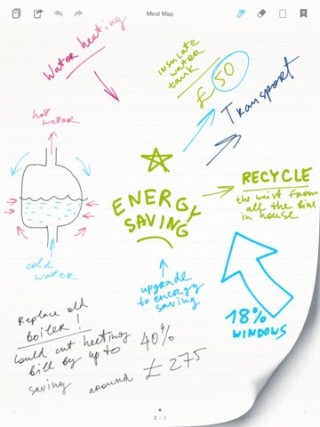 Mind Map
Water heating
insulate
water
tank
£50
Transport
hot
water
ENERGY
SAVING
RECYCLE
the
from
all the bins
in house
cold
water
upgrade
to energy
saving
18%
WINDOWS
Replace old
boiler!
Could cut heating
bill by up to 40%
saving around £275
2 / 3